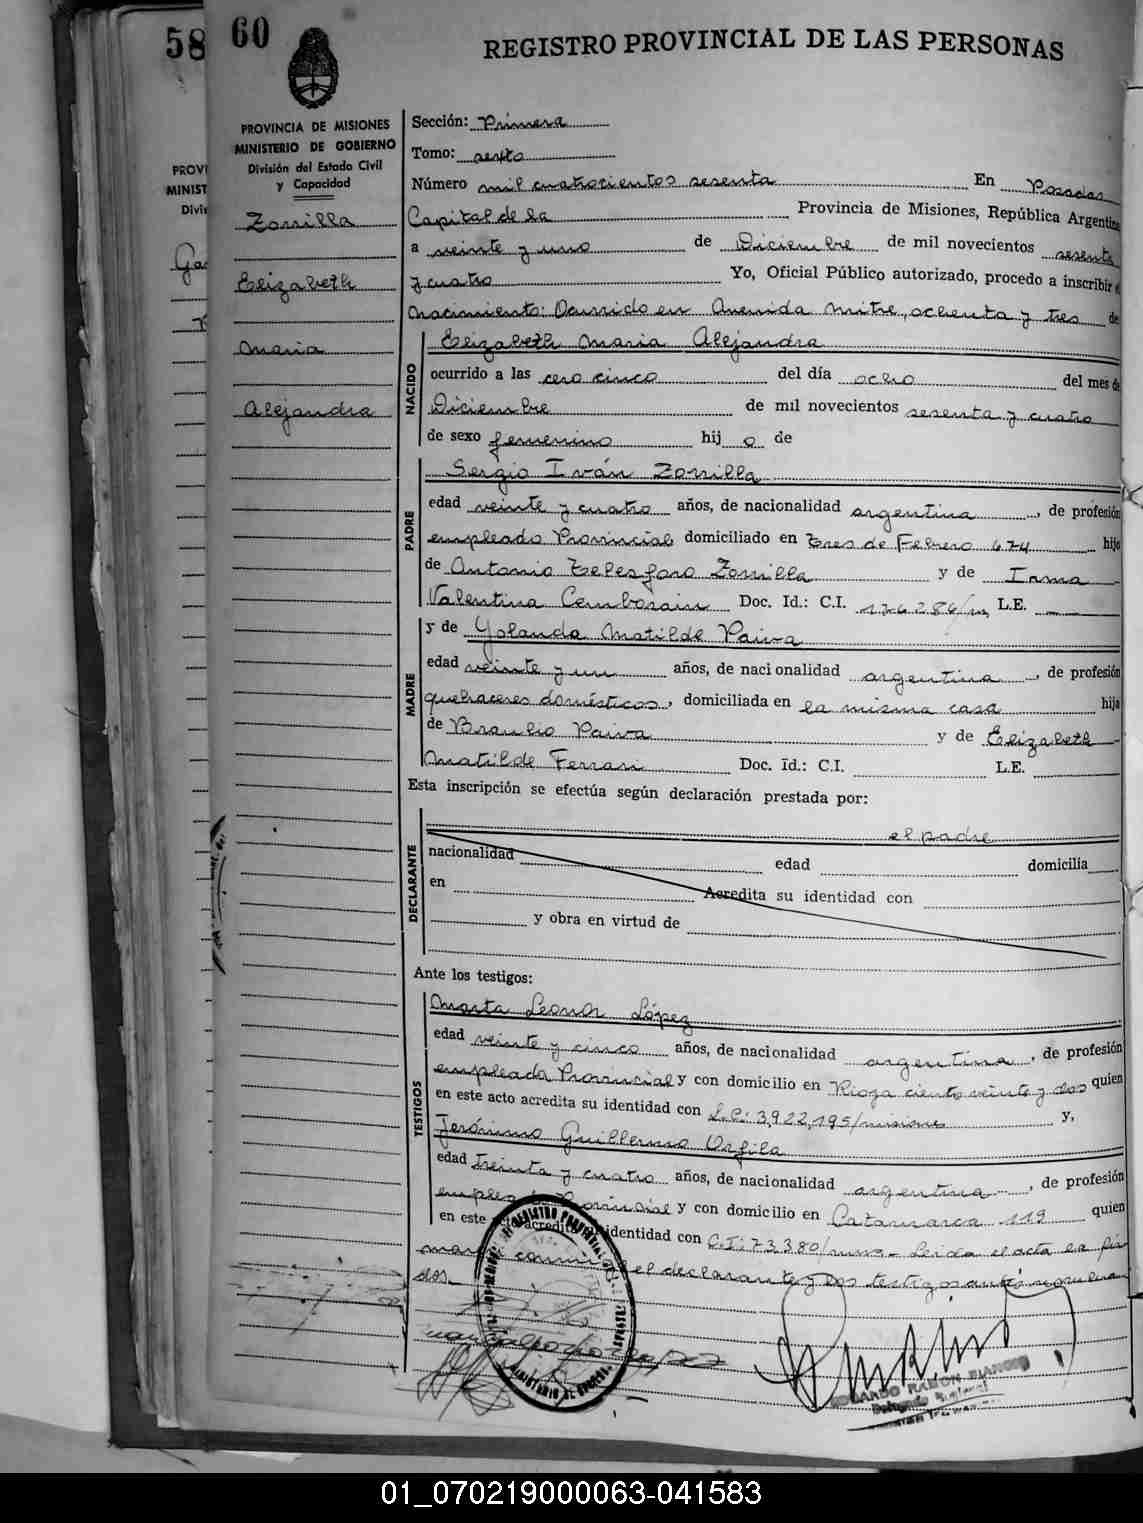 58
60
REGISTRO PROVINCIAL DE LAS PERSONAS
PROVINCIA DE MISIONES
MINISTERIO DE GOBIERNO
División del Estado Civil
y Capacidad
PROVI
MINIST
Divis
Zorrilla
Elizabeth
Maria
Alejandra
Sección: Primera
Tomo: sexto
Número mil cuatrocientos sesenta En Posadas
Capital de la Provincia de Misiones, República Argentina
a veinte y uno de Diciembre de mil novecientos sesenta
y cuatro Yo, Oficial Público autorizado, procedo a inscribir el
Nacimiento: Ocurrido en Avenida Mitre, ochenta y tres de
NACIDO
Elizabeth Maria Alejandra
ocurrido a las cero cinco del día ocho del mes de
Diciembre de mil novecientos sesenta y cuatro
de sexo femenino hij a de
PADRE
Sergio Iván Zorrilla
edad veinte y cuatro años, de nacionalidad argentina, de profesión
empleado Provincial domiciliado en Tres de Febrero 674 hijo
de Antonio Telesforo Zorrilla y de Irma
Valentina Cemborain Doc. Id.: C.I. 176.286/m L.E.
MADRE
y de Yolanda Matilde Paiva
edad veinte y un años, de nacionalidad argentina, de profesión
quehaceres domésticos, domiciliada en la misma casa hija
de Braulio Paiva y de Elizabeth
Matilde Ferrari Doc. Id.: C.I. L.E.
Esta inscripción se efectúa según declaración prestada por:
DECLARANTE
el padre
nacionalidad edad domicilia
en Acredita su identidad con
y obra en virtud de
Ante los testigos:
TESTIGOS
Marta Leonor López
edad veinte y cinco años, de nacionalidad argentina, de profesión
empleada Provincial y con domicilio en Rioja ciento veinte y dos quien
en este acto acredita su identidad con L.C: 3,922,195/misiones y,
Jerónimo Guillermo Orfila
edad treinta y cuatro años, de nacionalidad argentina, de profesión
empleado Provincial y con domicilio en Catamarca 119 quien
en este acredita identidad con C.I: 73,380/mnes- Leida el acta la fir
man conmigo el declarante y los testigos
dos.
EDUARDO RAMON BIANCO
01_070219000063-041583